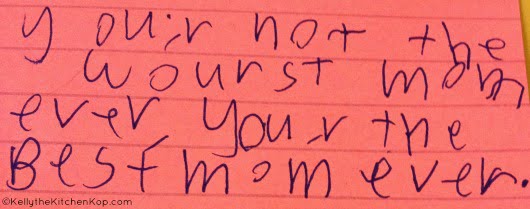 your not the
wourst mom
ever your the
Best mom ever.
©KellytheKitchenKop.com